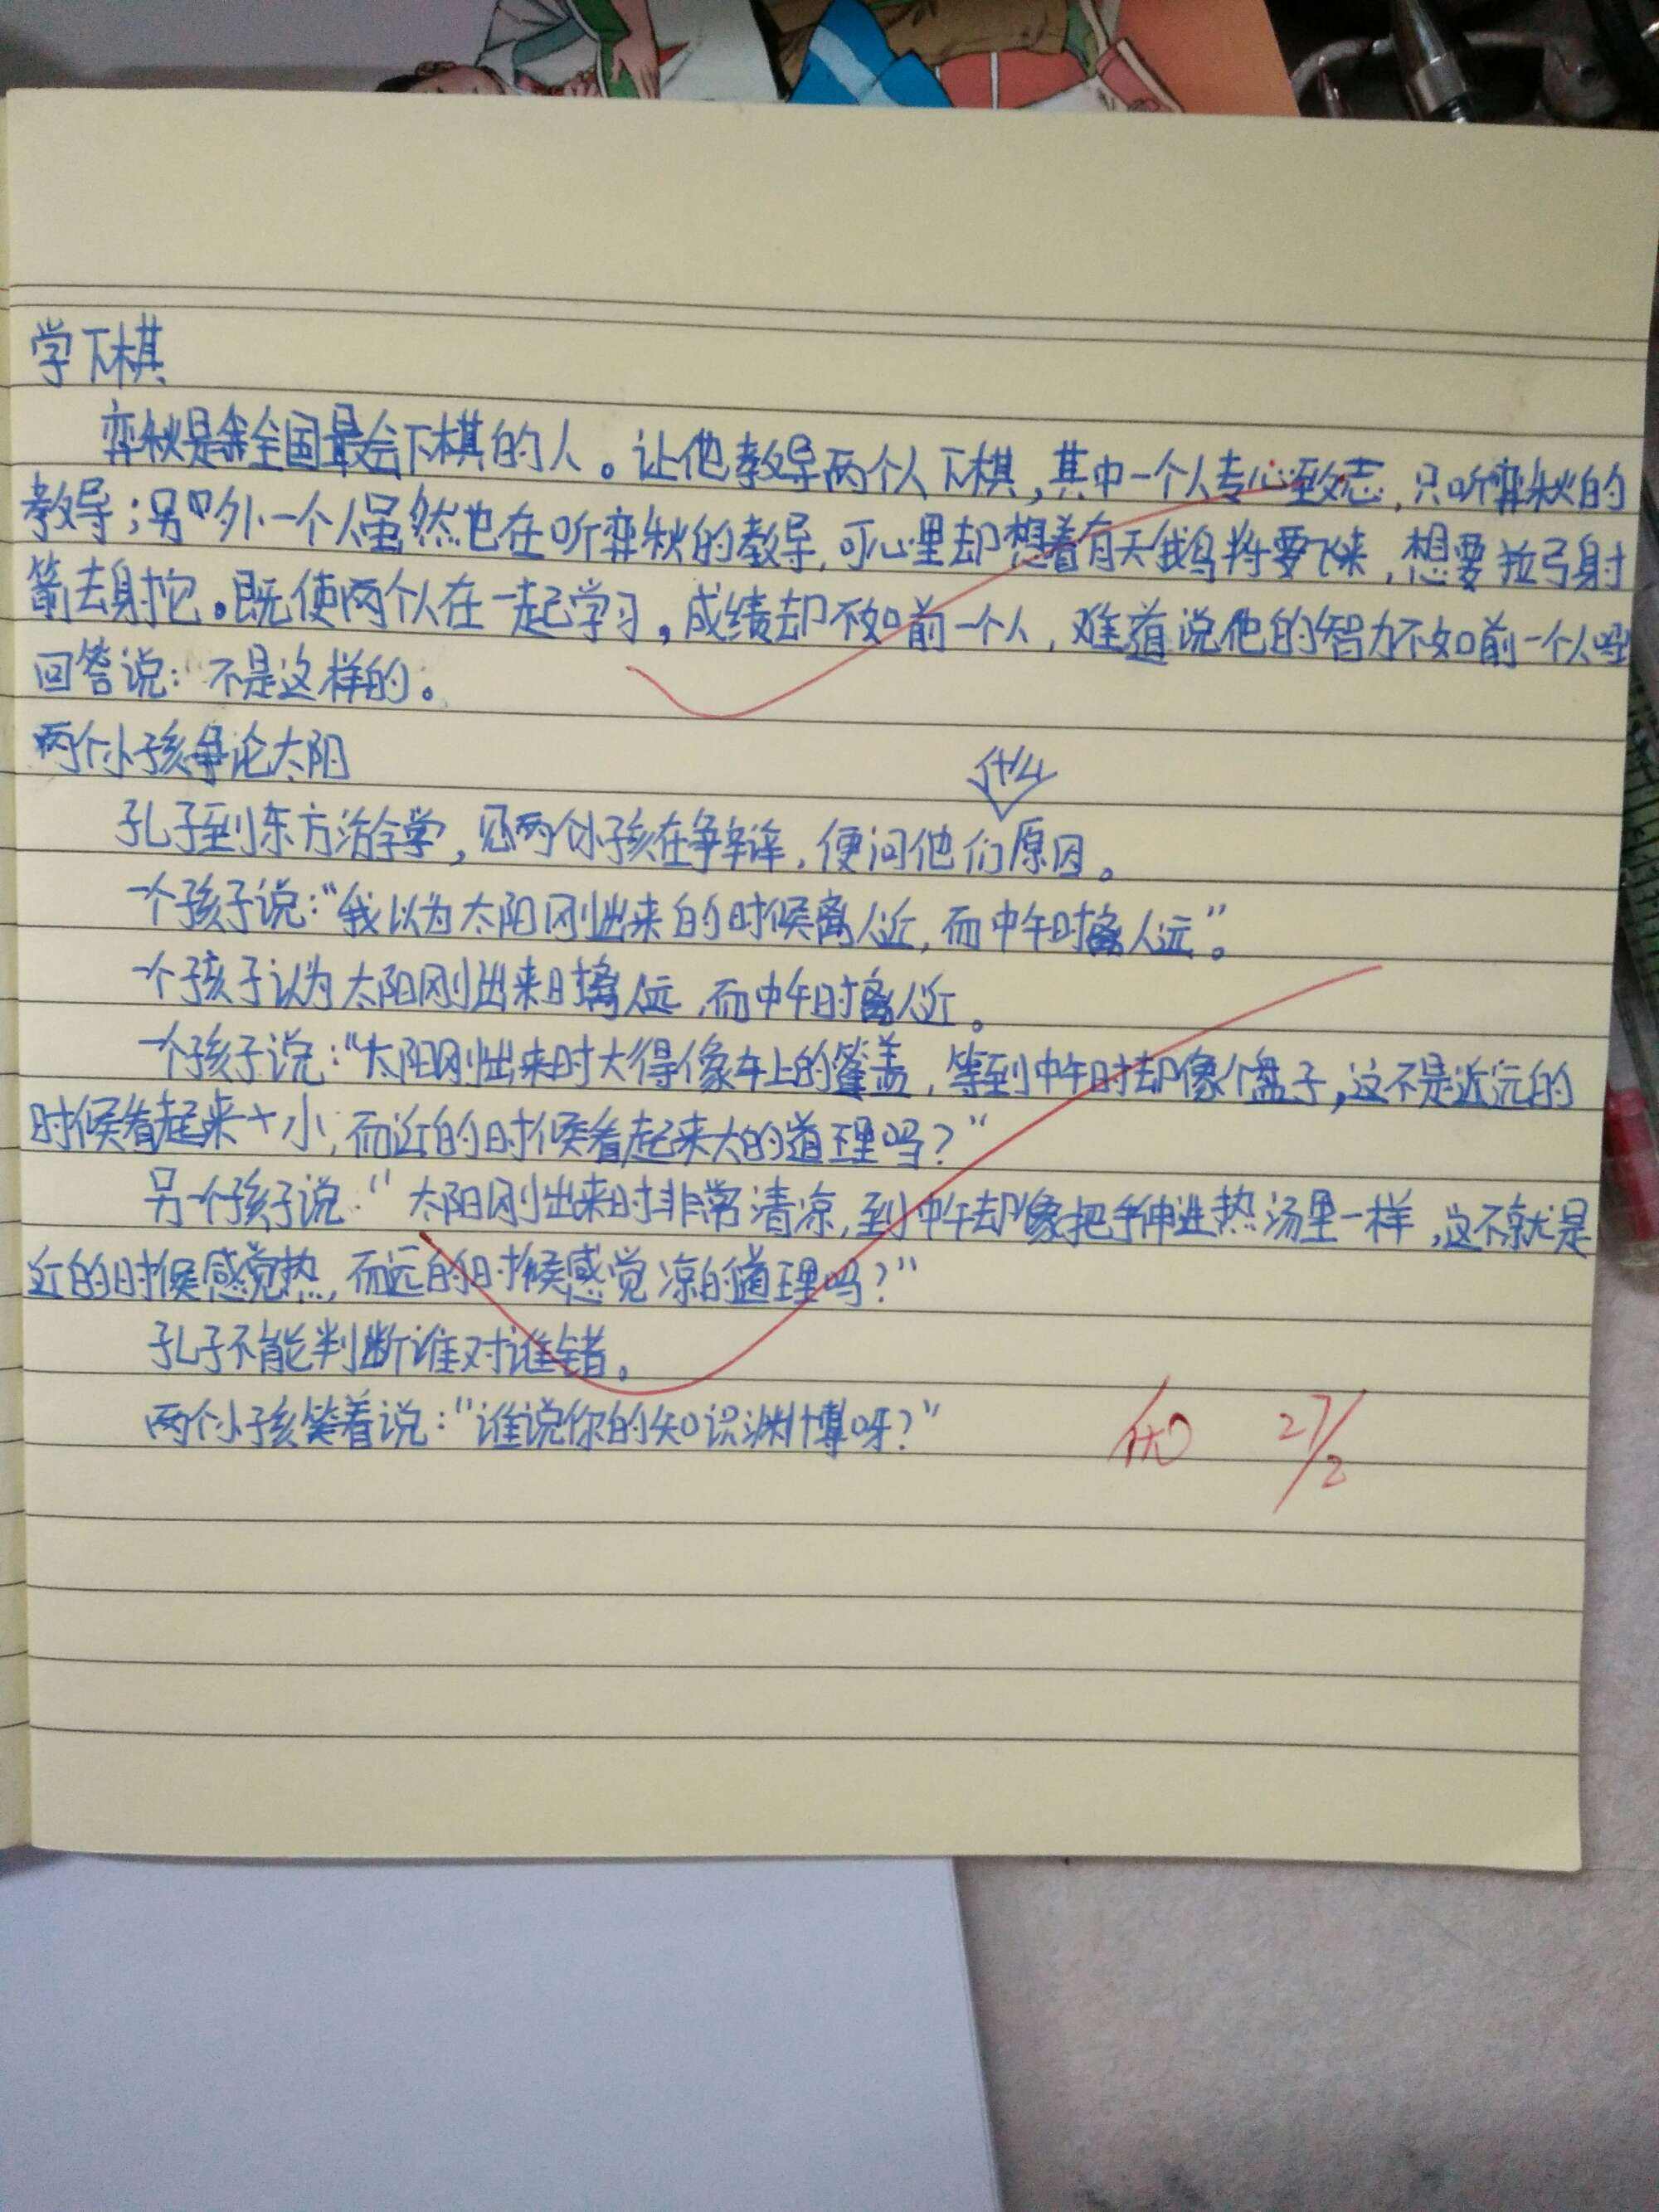 学下棋
弈秋是全国最会下棋的人。让他教导两个人下棋,其中一个人专心致志,只听弈秋的
教导;另外一个人虽然也在听弈秋的教导,可心里却想着有天鹅将要飞来,想要拉弓射
箭去射它。既使两个人在一起学习,成绩却不如前一个人,难道说他的智力不如前一个人吗
回答说:不是这样的。
两个小孩争论太阳
什么
孔子到东方游学,见两个小孩在争辩,便问他们原因。
一个孩子说:“我以为太阳刚出来的时候离人近,而中午时离人远”。
一个孩子认为太阳刚出来时离人远,而中午时离人近。
一个孩子说:“太阳刚出来时大得像车上的篷盖,等到中午时却像个盘子,这不是远的
时候看起来小,而近的时候看起来大的道理吗?”
另一个孩子说:“太阳刚出来时非常清凉,到中午却像把手伸进热汤里一样,这不就是
近的时候感觉热,而远的时候感觉凉的道理吗?”
孔子不能判断谁对谁错。
两个小孩笑着说:“谁说你的知识渊博呀?”
27/2